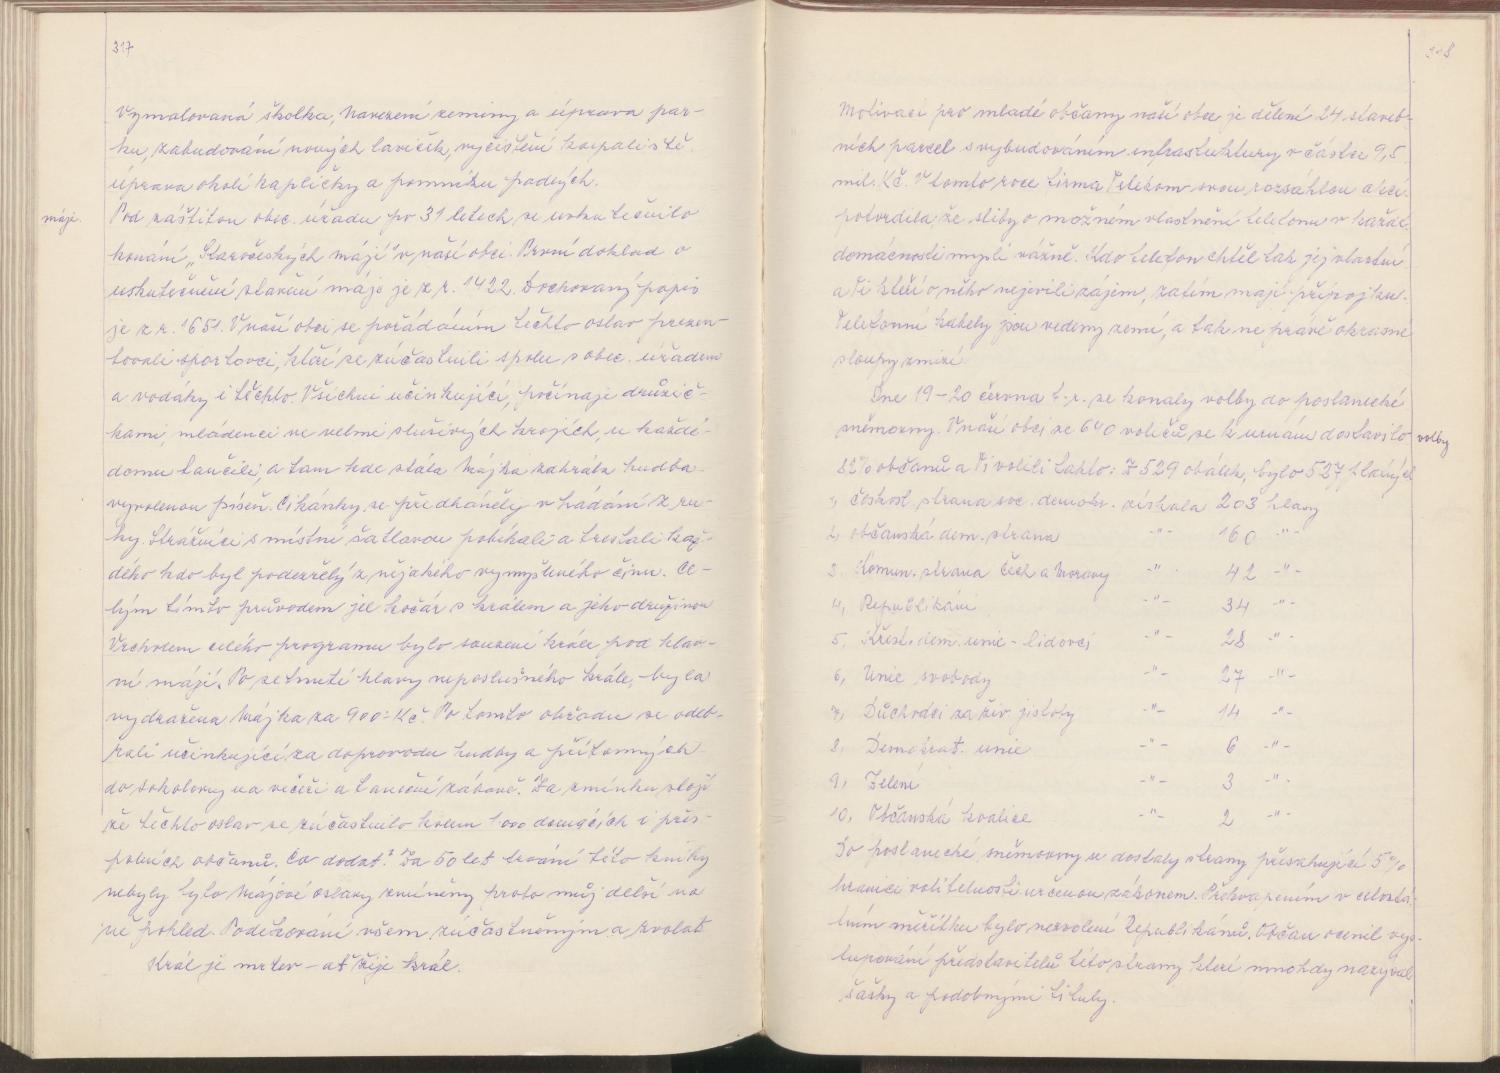 317
Vymalovaná školka, Navezení zeminy a úprava par-
ku, zabudování nových laviček, vyčištění koupaliště.
úprava okolí kapličky a pomníku padlých.
máje.
Pod záštitou obec. úřadu po 31 letech se uskutečnilo
konání „Staročeských májí" v naší obci. První doklad o
uskutečnění slavení máje je z r. 1422. Dochovaný popis
je z r. 1651. V naší obci se pořádáním těchto oslav prezen-
tovali sportovci, kteří se zúčastnili spolu s obec. úřadem
a vodáky i těchto. Všichni účinkující, počínaje družič-
kami, mládenci ve velmi slušivých krojích, u každé-
domu tančili, a tam kde stála Májka zahrála hudba
vyvolenou píseň. Cikánky se předháněly v hádání z ru-
ky. Strážníci s místní šatlavou pobíhali a trestali kaž-
dého kdo byl podezřelý z nějakého vymyšleného činu. Ce-
lým tímto průvodem jel kočár s králem a jeho družinou
Vrcholem celého programu bylo souzení krále pod hlav-
ní májí. Po setnutí hlavy neposlušného krále, - byla
vydražena Májka za 900= Kč. Po tomto obřadu se odeb-
rali účinkující za doprovodu hudby a přítomných
do sokolovny na večeři a taneční zábavě. Za zmínku stojí
že těchto oslav se zúčastnilo kolem 1.000 domácích i přes-
polních občanů. Co dodat? Za 50 let trvání této knihy
nebyly tyto Májové oslavy zmíněny proto můj delší na
ně pohled. Poděkování všem zúčastněným a zvolat
Král je mrtev - ať žije král.
318
Motivací pro mladé občany naší obce je dělení 24 staveb-
ních parcel s vybudováním infrastuktury v částce 9,5
mil. Kč. V tomto roce firma Telekom svou rozsáhlou akcí
potvrdila, že sliby o možném vlastnění telefonu v každé
domácnosti myslí vážně. Kdo telefon chtěl tak jej vlastní
a Ti kteří o něho nejevili zájem, zatím mají přípojku.
Telefonní kabely jsou vedeny zemí, a tak ne právě okrasné
sloupy zmizí
Dne 19-20 června t. r. se konaly volby do poslanecké
volby
sněmovny. V naší obci ze 640 voličů se k urnám dostavilo
82% občanů a Ti volili takto: Z 529 obálek, bylo 527 platných
1, Českosl. strana soc. demokr. získala 203 hlasy
2, občanská dem. strana -"- 160 -"-
3. Komun. strana Čech a Moravy -"- 42 -"-
4, Republikáni -"- 34 -"-
5, Křest. dem. unie - lidovci -"- 28 -"-
6, Unie svobody -"- 27 -"-
7, Důchodci za živ. jistoty -"- 14 -"-
8, Demokrat. unie -"- 6 -"-
9, Zelení -"- 3 -"-
10, Občanská koalice -"- 2 -"-
Do poslanecké sněmovny se dostaly strany přesahující 5%
hranici volitelnosti určenou zákonem. Překvapením v celostá-
tním měřítku bylo nezvolení Republikánů. Občan ocenil vys-
tupování představitelů této strany které mnohdy nazýval
šašky a podobnými tituly.